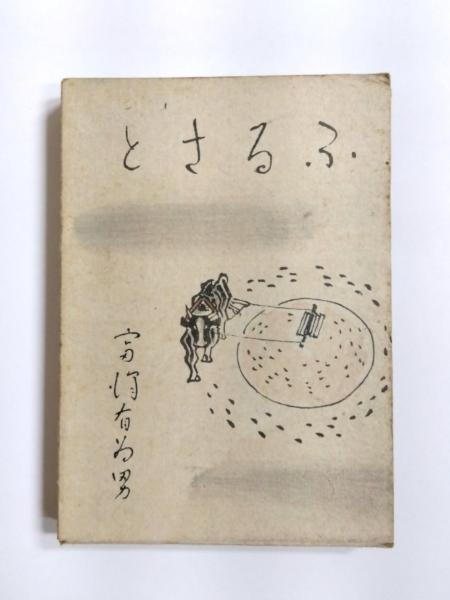 ふるさと
富澤有為男